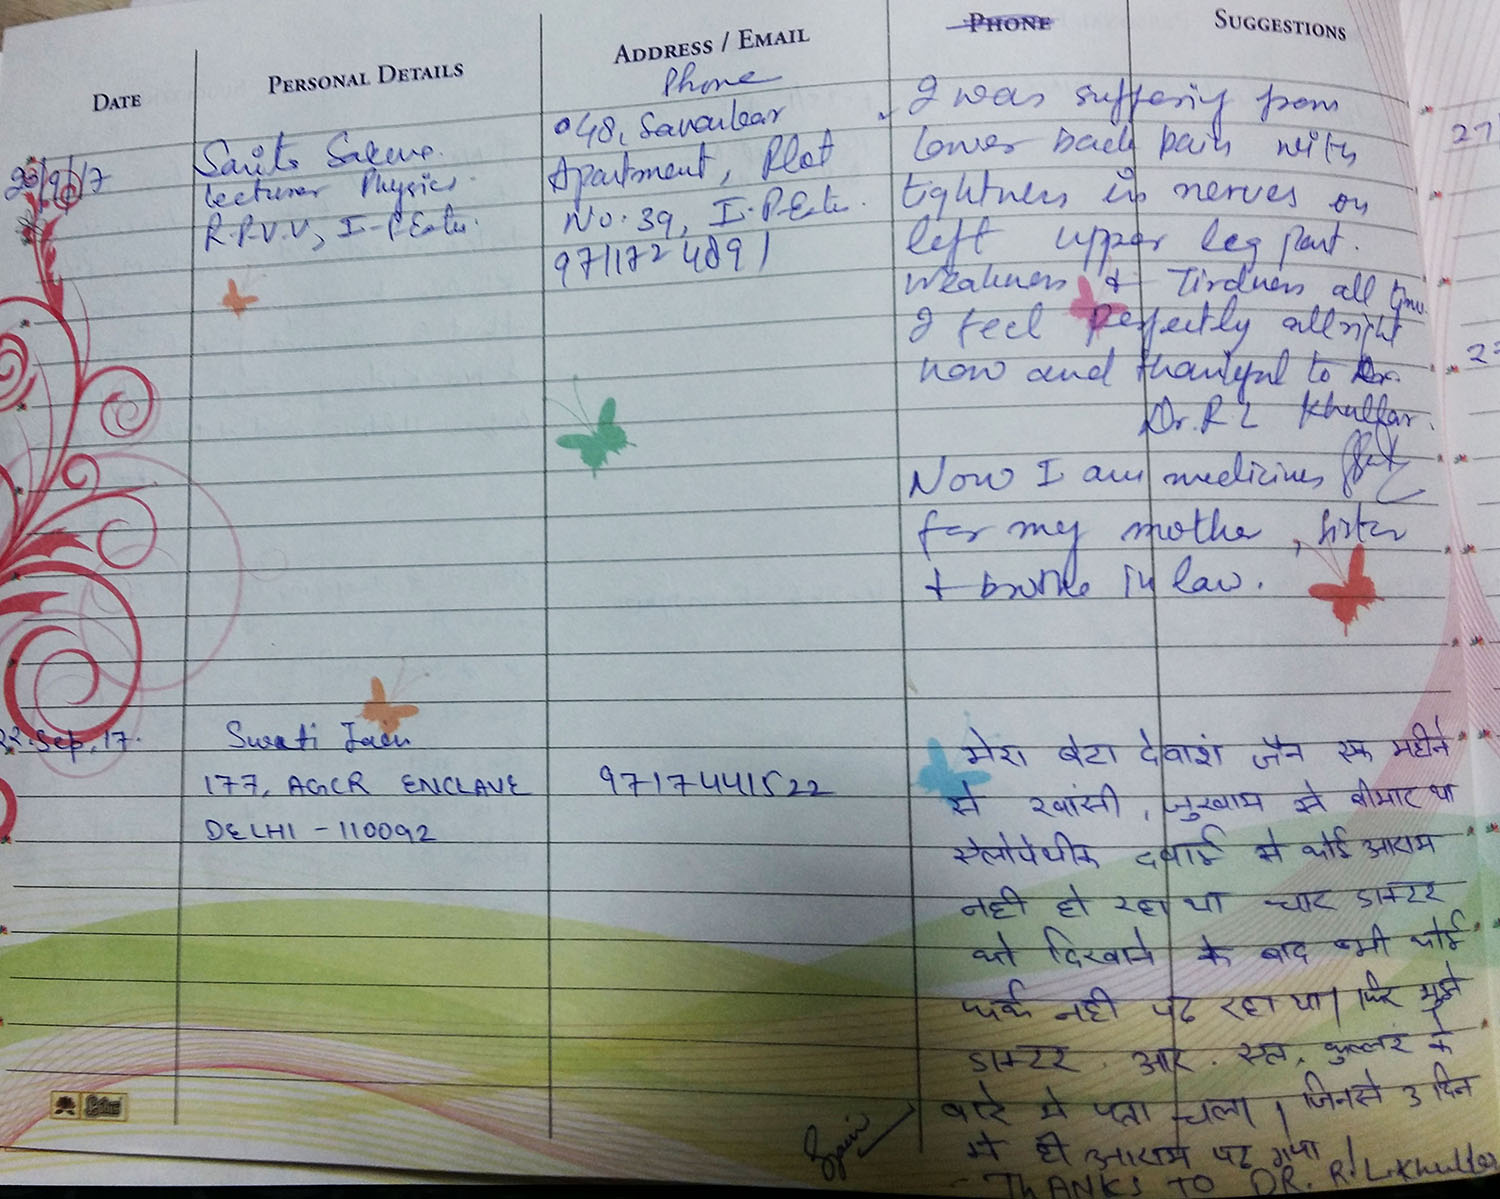 DATE
PERSONAL DETAILS
ADDRESS / EMAIL
Phone
PHONE
SUGGESTIONS
23/9/17
Lecturer Physics.
R.P.V.V,
48,
Apartment, Plot
No. 39,
I was suffering from
Lower back pain with
tightness in nerves on
left upper leg part.
Weakness & Tirdness all time
I feel perfectly allright
now and thankful to Dr.
Dr. R L Khullar.
Now I am medicines
for my mother, sister
+ brother in law.
27
22. Sep. 17.
Swati Jain
177, AGCR ENCLAVE
DELHI - 110092
9717441522
मेरा बेटा देवाशं जैन एक महीने
से खांसी, जुखाम से बीमार था
ऐलोपेथीक दवाई से कोई आराम
नही हो रहा था चार डाक्टर
को दिखाने के बाद भी कोई
फर्क नही पढ रहा था। फिर मुझे
डाक्टर. आर. एल. खुल्लर के
बारे मे पता चला। जिनसे 3 दिन
मे ही आराम पढ गया।
THANKS TO DR. R.L. Khullar